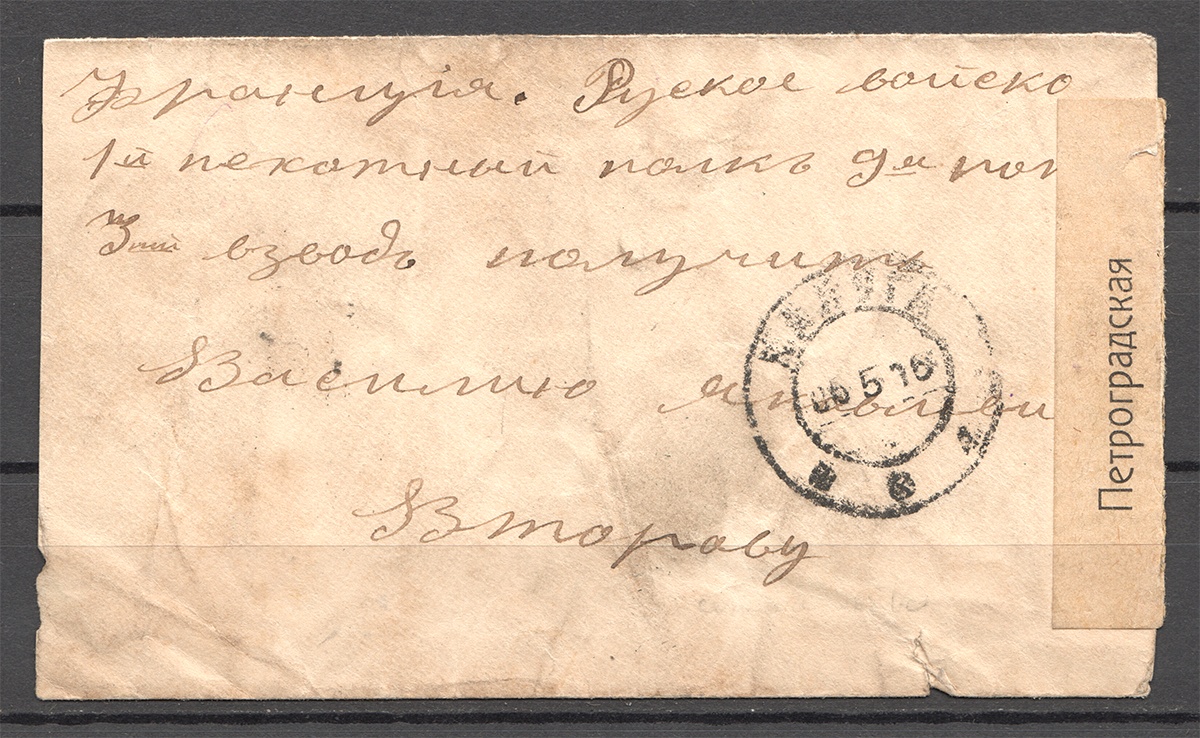 Франція. Руское войско
1й пехотный полкъ 9я рот
3ий взводъ получить
Василию
Второву
КАЛУГА
06 5 16
Петроградская